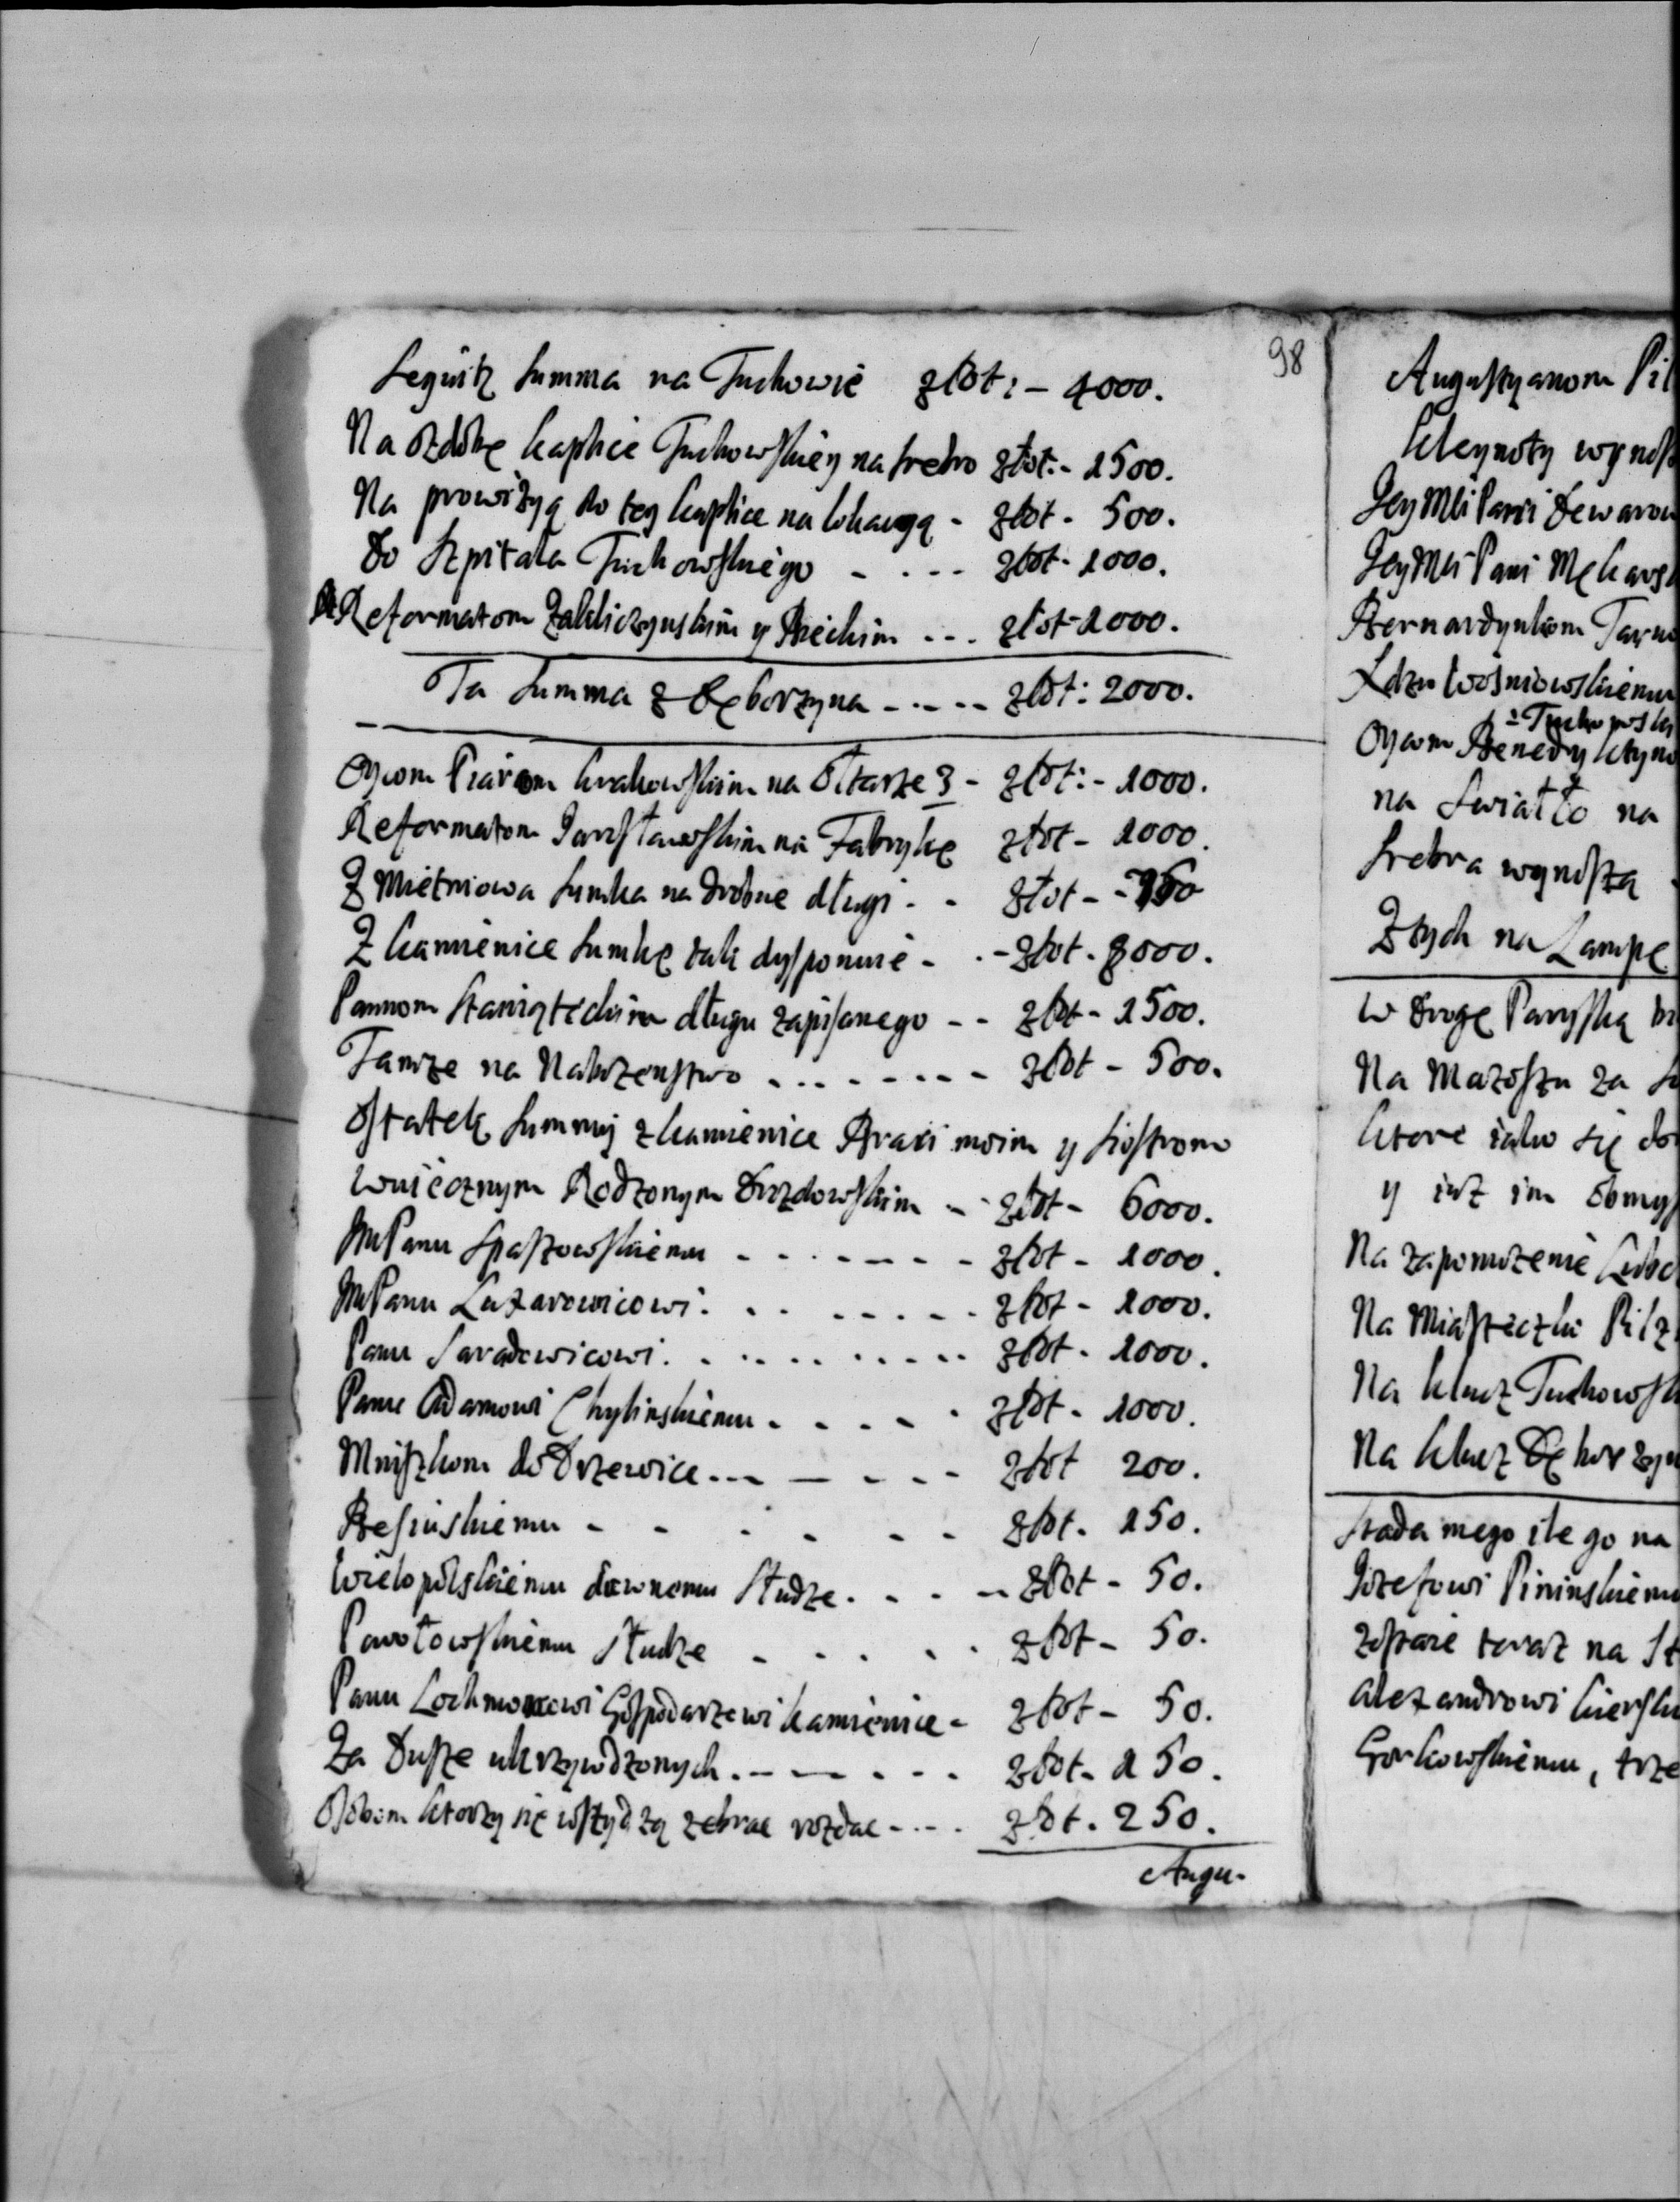 98
Sequit Summa na Tuchowie złot: - 4000.
Na ozdobę kaplice Tuchowskiey na srebro złot: - 1500.
Na prowizyą do tey kaplice na lokacyą - złot - 500.
Do Szpitala Tuchowskiego - - - - złot - 1000.
Reformatom Zakliczynskim y Bieckim - - - złot - 1000.
Ta Summa z Dęborzyna - - - - - złot: 2000.
Oycom Piarom krakowskim na Ołtarze 3 - złot: - 1000.
Reformatom Jarosławskim na Fabrykę złot - 1000.
Z Mietniowa Sumka na drobne długi - - złot -
Z kamienice Sumkę tak dysponuie - - - złot - 8000.
Pannom Staniąteckim długu zapisanego - - złot - 1500.
Tamze na Nabozenstwo - - - - - - - złot - 500.
Ostatek Summy z kamienice Braci moim y siostrom
wuiecznym Rodzonym Drozdowskim - - złot - 6000.
ImPanu Spaszowskiemu - - - - - - - złot - 1000.
ImPanu Lazarowicowi - - - - - - - złot - 1000.
Panu Saradowicowi - - - - - - - - - złot - 1000.
Panu Adamowi Chylinskiemu - - - - - złot - 1000.
Mniszkom do Drzewice - - - - - - - złot 200.
Besinskiemu - - - - - - złot - 150.
Wielopolskiemu dawnemu słudze - - - - złot - 50.
Pawołowskiemu słudze - - - - - złot - 50.
Panu Gospodarzewi kamienice - złot - 50.
Za Dusze ukrzywdzonych - - - - - - - złot - 150.
Osobom ktorzy się wstydzą zebrac rozdac - - - - złot - 250.
Augu-
Augustyanom Pil
kleynoty wynos
JeyMći Pani Dewaro
JeyMći Pani Mękarsk
Bernardynkom Tarno
Xdzu Wośniowskiemu
Tuchowski
Oycom Benedyktyno
na Swiatło na
Srebra wynoszą
Z tych na Lampę
W drogę Paryską
Na Mazoszu za
ktore iako się do
y iuz im obmys
Na zapomozenie
Na Miasteczko Pilz
Na klucz Tuchowsk
Na klucz Dęborzyn
Stada mego ile go na
Jozefowi Pininskiemu
zostaie teraz na St
Alexandrowi kiersk
Gorkowskiemu, trze